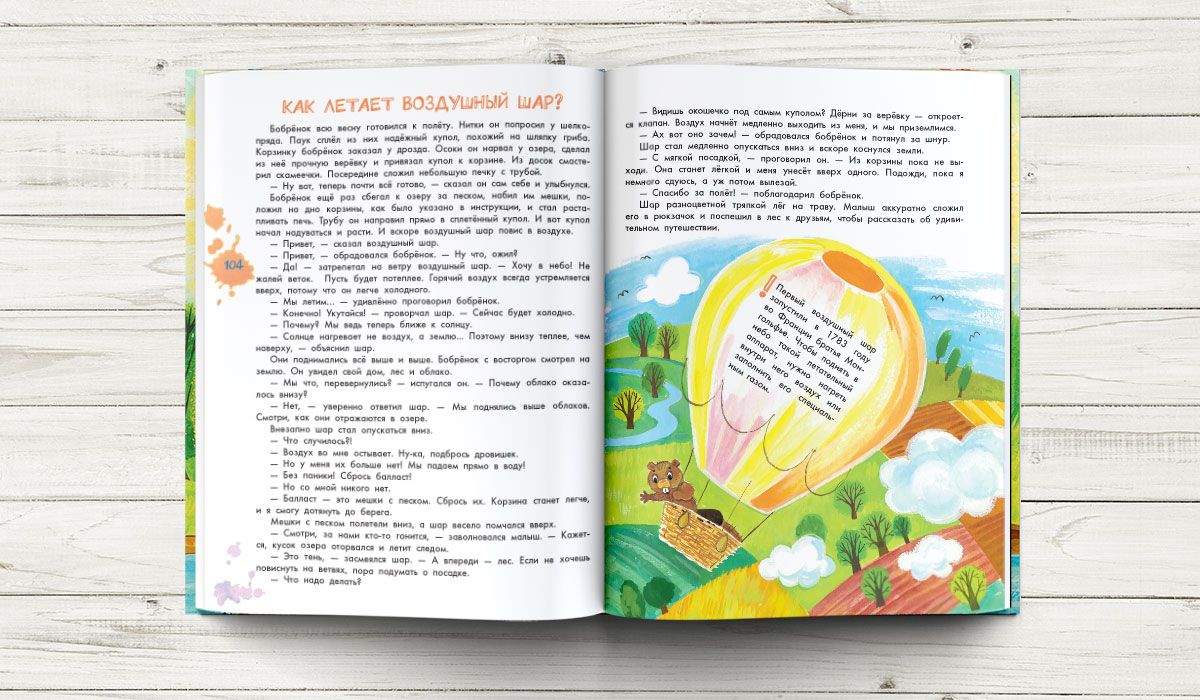 КАК ЛЕТАЕТ ВОЗДУШНЫЙ ШАР?
Бобрёнок всю весну готовился к полёту. Нитки он попросил у шелко-
пряда. Паук сплёл из них надёжный купол, похожий на шляпку гриба.
Корзинку бобрёнок заказал у дрозда. Осоки он нарвал у озера, сделал
из неё прочную верёвку и привязал купол к корзине. Из досок смасте-
рил скамеечки. Посередине сложил небольшую печку с трубой.
— Ну вот, теперь почти всё готово, — сказал он сам себе и улыбнулся.
Бобрёнок ещё раз сбегал к озеру за песком, набил им мешки, по-
ложил на дно корзины, как было указано в инструкции, и стал раста-
пливать печь. Трубу он направил прямо в сплетённый купол. И вот купол
начал надуваться и расти. И вскоре воздушный шар повис в воздухе.
— Привет, — сказал воздушный шар.
— Привет, — обрадовался бобрёнок. — Ну что, ожил?
— Да! — затрепетал на ветру воздушный шар. — Хочу в небо! Не
жалей веток. Пусть будет потеплее. Горячий воздух всегда устремляется
вверх, потому что он легче холодного.
— Мы летим... — удивлённо проговорил бобрёнок.
— Конечно! Укутайся! — проворчал шар. — Сейчас будет холодно.
— Почему? Мы ведь теперь ближе к солнцу.
— Солнце нагревает не воздух, а землю... Поэтому внизу теплее, чем
наверху, — объяснил шар.
Они поднимались всё выше и выше. Бобрёнок с восторгом смотрел на
землю. Он увидел свой дом, лес и облако.
— Мы что, перевернулись? — испугался он. — Почему облако оказа-
лось внизу?
— Нет, — уверенно ответил шар. — Мы поднялись выше облаков.
Смотри, как они отражаются в озере.
Внезапно шар стал опускаться вниз.
— Что случилось?!
— Воздух во мне остывает. Ну-ка, подбрось дровишек.
— Но у меня их больше нет! Мы падаем прямо в воду!
— Без паники! Сбрось балласт!
— Но со мной никого нет.
— Балласт — это мешки с песком. Сбрось их. Корзина станет легче,
и я смогу дотянуть до берега.
Мешки с песком полетели вниз, а шар весело помчался вверх.
— Смотри, за нами кто-то гонится, — заволновался малыш. — Кажет-
ся, кусок озера оторвался и летит следом.
— Это тень, — засмеялся шар. — А впереди — лес. Если не хочешь
повиснуть на ветвях, пора подумать о посадке.
— Что надо делать?
104
— Видишь окошечко под самым куполом? Дёрни за верёвку — откроет-
ся клапан. Воздух начнёт медленно выходить из меня, и мы приземлимся.
— Ах вот оно зачем! — обрадовался бобрёнок и потянул за шнур.
Шар стал медленно опускаться вниз и вскоре коснулся земли.
— С мягкой посадкой, — проговорил он. — Из корзины пока не вы-
ходи. Она станет лёгкой и меня унесёт вверх одного. Подожди, пока я
немного сдуюсь, а уж потом вылезай.
— Спасибо за полёт! — поблагодарил бобрёнок.
Шар разноцветной тряпкой лёг на траву. Малыш аккуратно сложил
его в рюкзачок и поспешил в лес к друзьям, чтобы рассказать об удиви-
тельном путешествии.
! Первый воздушный шар
запустили в 1783 году
во Франции братья Мон-
гольфье. Чтобы поднять в
небо такой летательный
аппарат, нужно нагреть
внутри него воздух или
заполнить его специаль-
ным газом.